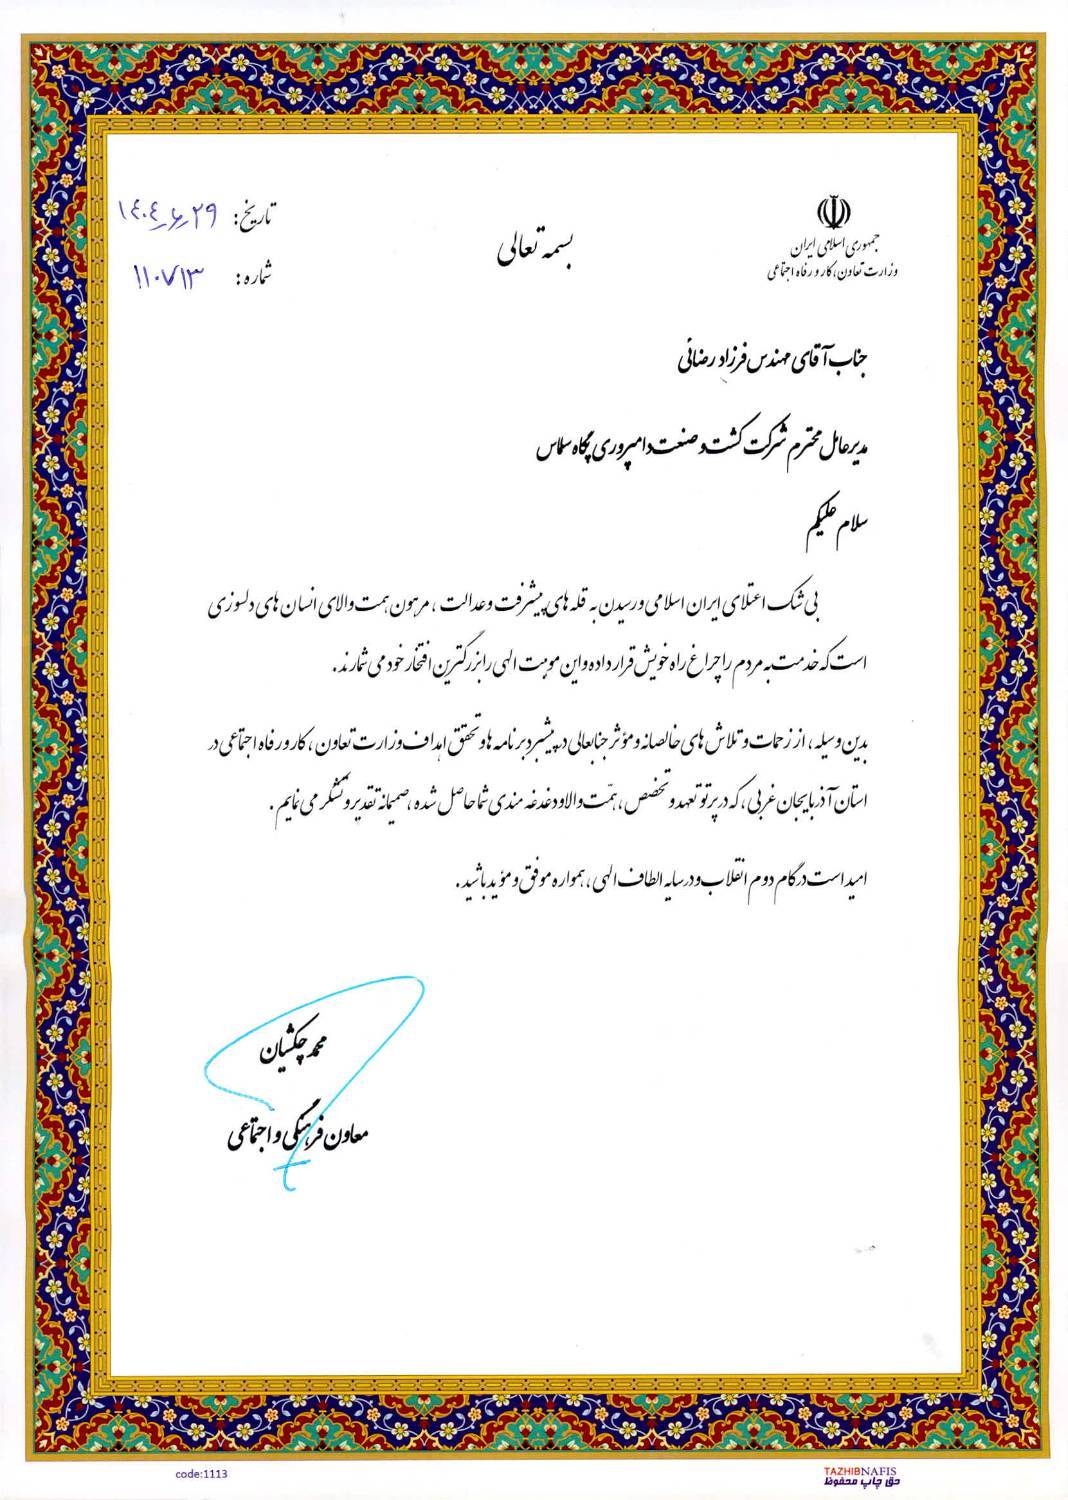 جمهوری اسلامی ایران
وزارت تعاون، کار و رفاه اجتماعی
بسمه تعالی
تاریخ: ۱۴۰۴٫۶٫۲۹
شماره: ۱۱۰۷۱۳
جناب آقای مهندس فرزاد رضائی
مدیرعامل محترم شرکت کشت و صنعت دامپروری پگاه سلماس
سلام علیکم
بی شک اعتلای ایران اسلامی و رسیدن به قله های پیشرفت و عدالت، مرهون همت والای انسان های دلسوزی
است که خدمت به مردم را چراغ راه خویش قرار داده و این موهبت الهی را بزرگترین افتخار خود می شمارند.
بدین وسیله، از زحمات و تلاش های خالصانه و مؤثر جنابعالی در پیشبرد برنامه ها و تحقق اهداف وزارت تعاون، کار و رفاه اجتماعی در
استان آذربایجان غربی، که در پرتو تعهد و تخصص، همّت والا و دغدغه مندی شما حاصل شده، صمیمانه تقدیر و تشکر می نمایم.
امید است در گام دوم انقلاب و در سایه الطاف الهی، همواره موفق و مؤید باشید.
محمد چکشیان
معاون فرهنگی و اجتماعی
code:1113
TAZHIBNAFIS
حق چاپ محفوظ